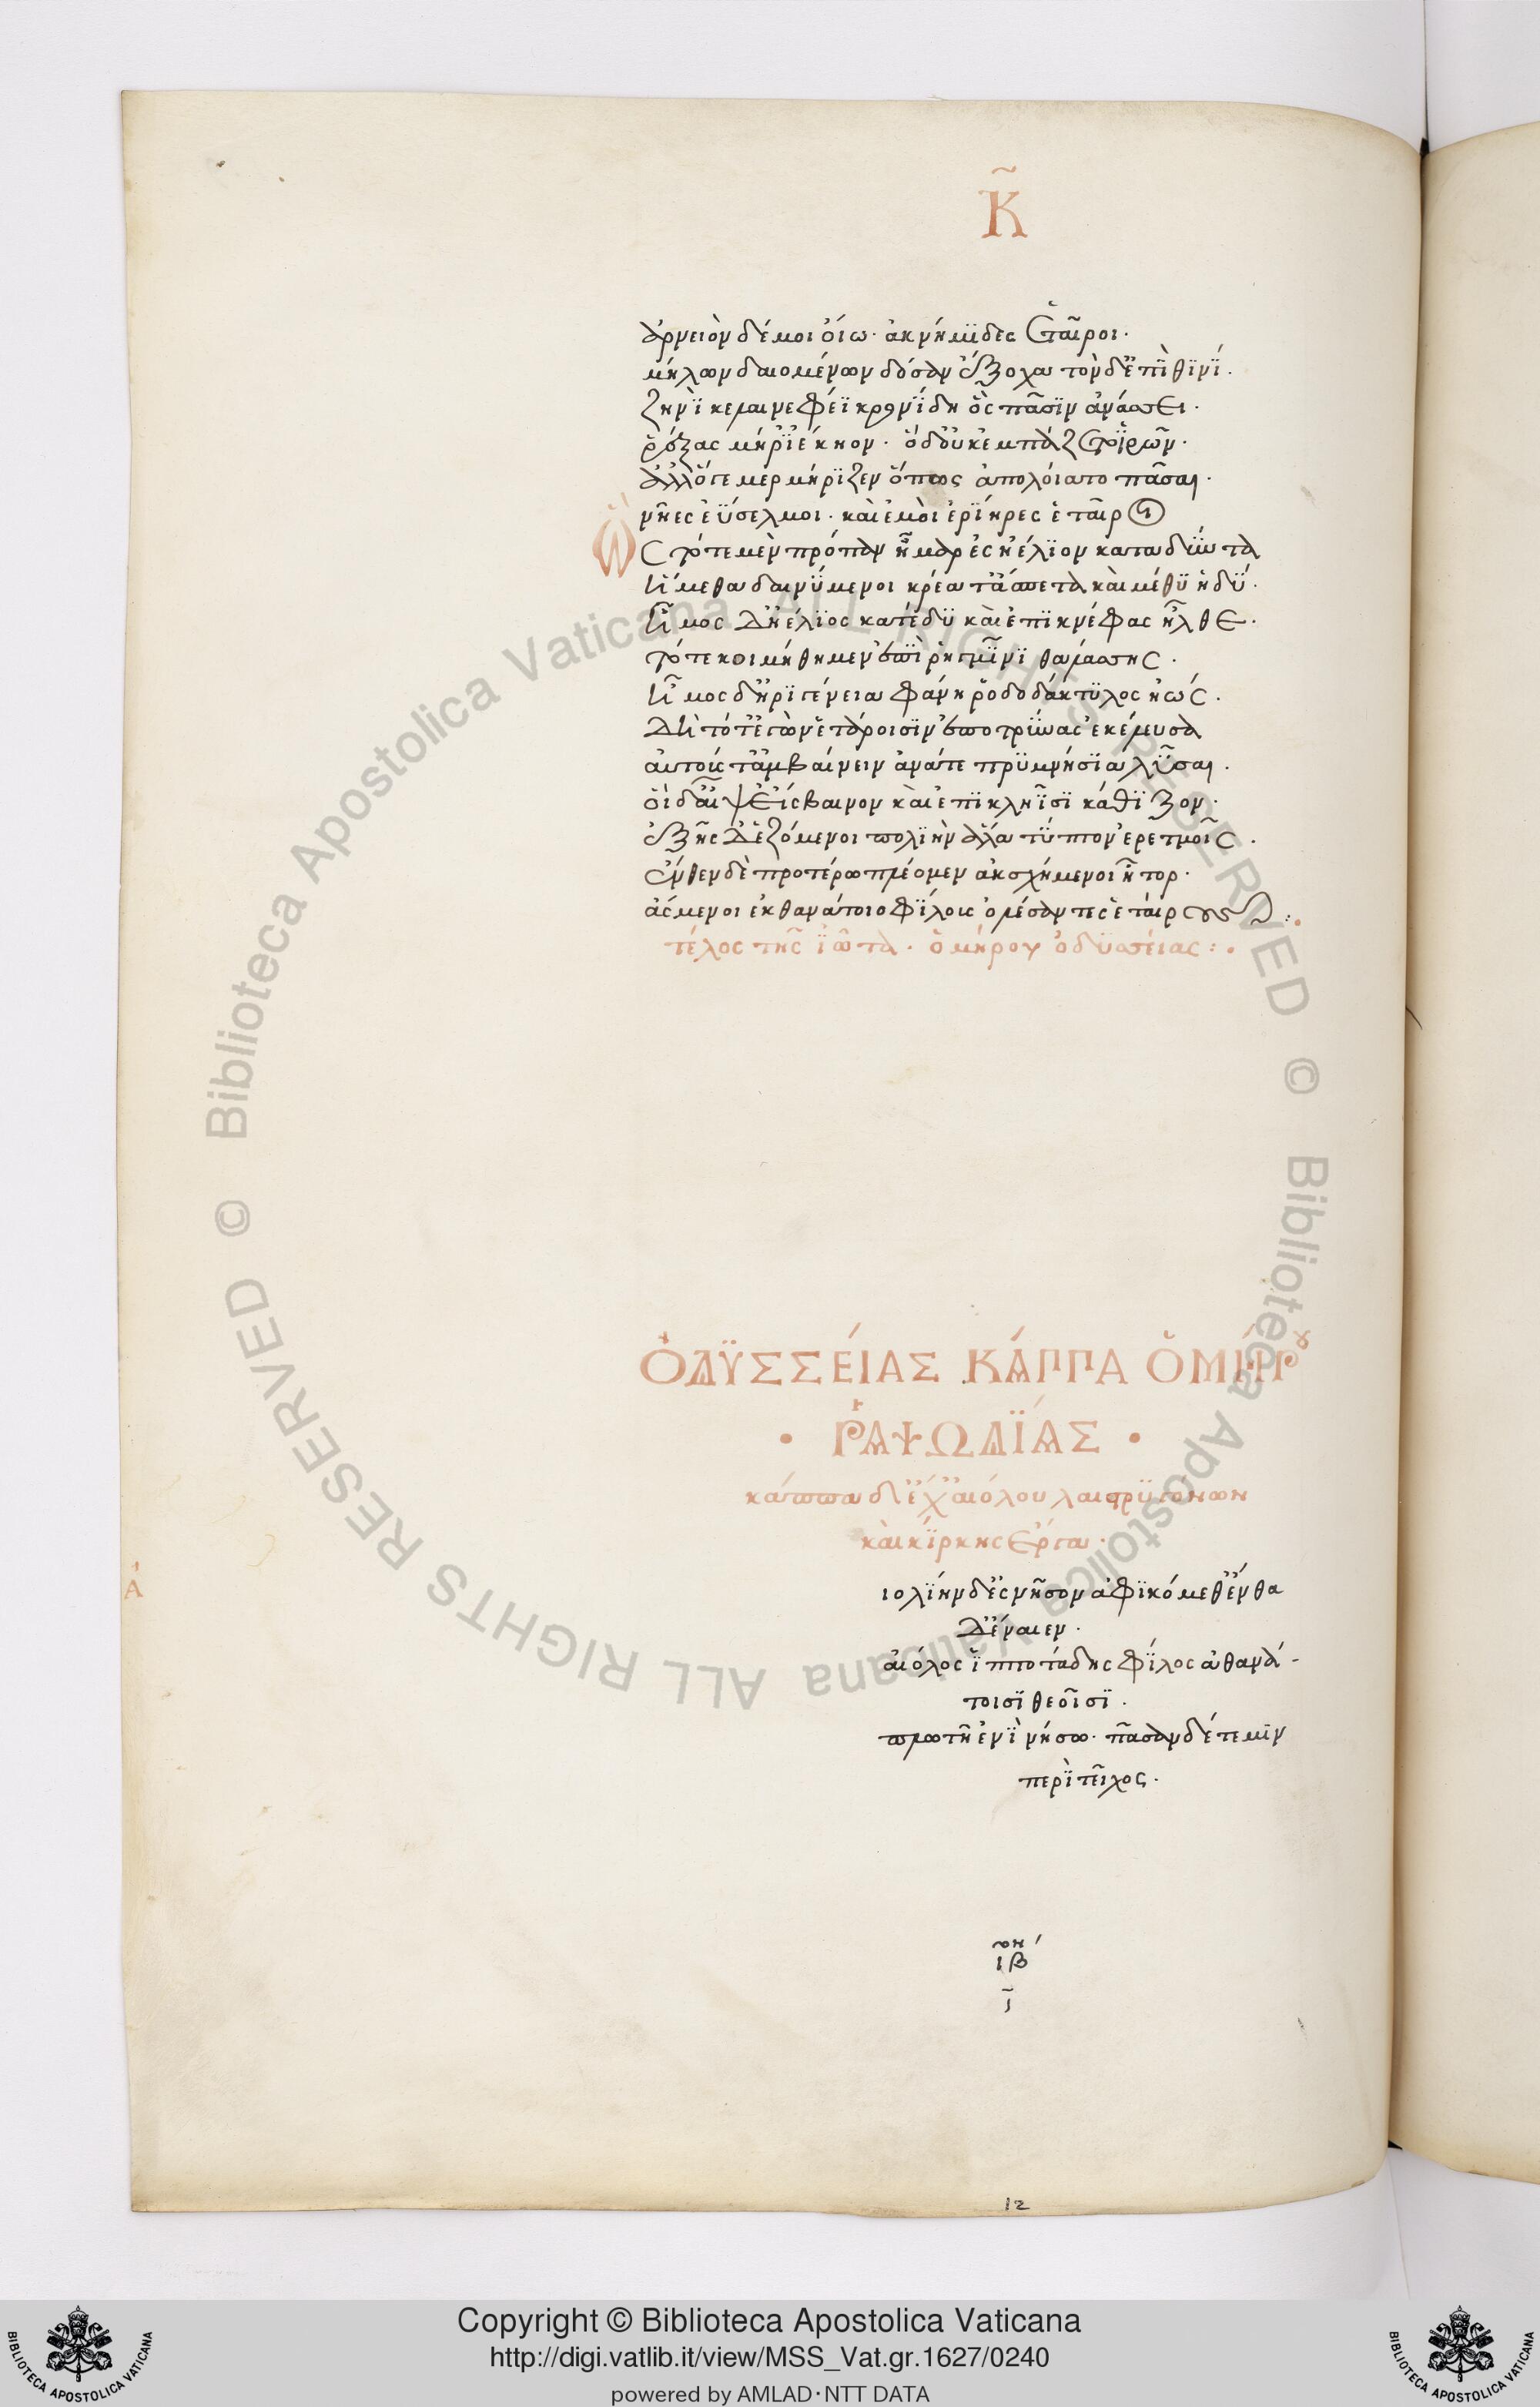 Κ̃
ἀρνειὸν δέ μοι ὀίω· ἀκνήμϊδες ἑταῖροι·
μήλων δαιομένων δόσαν ἔξοχα τὸν δ' ἐπὶ θϊνί·
ζηνϊ κελαινεφέϊ κρονΐδη ὃς πᾶσϊν ἀνάσσει·
ῥέξας μήρϊ' ἔκηον· ὁ δ' οὐκ ἐμπάζετο ϊρῶν·
ἀλλ' ὅτε μερμήρϊζεν ὅπως ἀπολοίατο πᾶσαι·
νῆες ἐΰσελμοι· καὶ ἐμοὶ ἐρΐηρες ἑταῖροι
Ὣς τότε μὲν πρόπαν ἦμαρ ἐς ἠέλϊον καταδύντα
ἥμεθα δαινΰμενοι κρέα τ' ἄσπετα καὶ μέθϋ ἡδΰ·
ἦμος δ' ἠέλϊος κατέδϋ καὶ ἐπϊ κνέφας ἦλθε·
τότε κοιμήθημεν ἐπὶ ῥηγμῖνϊ θαλάσσης·
ἦμος δ' ἠρϊγένεια φάνη ῥοδοδάκτϋλος ἠώς·
δὴ τότ' ἐγὼν ἑτάροισϊν ἐποτρΰνας ἐκέλευσα
αὐτούς τ' ἀμβαίνειν ἀνά τε πρϋμνήσϊα λῦσαι·
οἱ δ' αἶψ' εἴσβαινον καὶ ἐπϊ κληῖσϊ κάθϊζον·
ἑξῆς δ' ἑζόμενοι πολϊὴν ἅλα τΰπτον ἐρετμοῖς·
ἔνθεν δὲ προτέρω πλέομεν ἀκαχήμενοι ἦτορ·
ἄσμενοι ἐκ θανάτοιο φΐλους ὀλέσαντες ἑταίρους :·
τέλος τῆς ϊῶτα· ὁμήρου ὀδϋσσείας :·
ὈΔΫΣΣΕΊΑΣ ΚΆΠΠΑ ὉΜΉΡΟΥ
· ῬΑΨΩΔΪ́ΑΣ ·
κάππα δ' ἔχ' αἰόλου λαιστρϋγόνων
καὶ κΐρκης ἔργα·
Α
ιολΐην δ' ἐς νῆσον ἀφϊκόμεθ' ἔνθα
δ' ἔναιεν·
αἰόλος ϊπποτάδης φΐλος ἀθανά-
τοισϊ θεοῖσϊ·
πλωτῆ ἐνϊ νήσω· πᾶσαν δέ τέ μιν
περϊ τεῖχος·
ιβ
ι
12
Copyright © Biblioteca Apostolica Vaticana
http://digi.vatlib.it/view/MSS_Vat.gr.1627/0240
powered by AMLAD·NTT DATA
© Biblioteca Apostolica Vaticana ALL RIGHTS RESERVED © Biblioteca Apostolica Vaticana ALL RIGHTS RESERVED
BIBLIOTECA APOSTOLICA VATICANA
BIBLIOTECA APOSTOLICA VATICANA